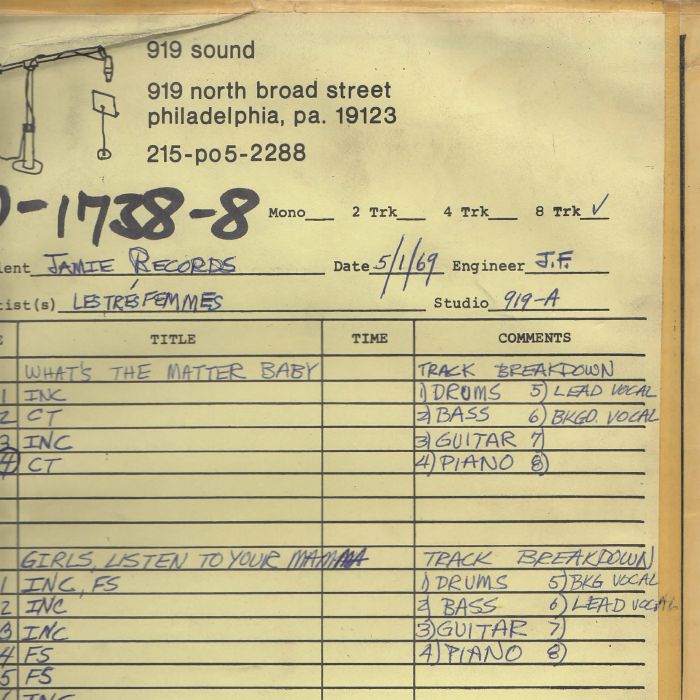 919 sound
919 north broad street
philadelphia, pa. 19123
215-po5-2288
-1738-8 Mono 2 Trk 4 Trk 8 Trk ✓
ient JAMIE RECORDS Date 5/1/69 Engineer J.F.
tist(s) LES TRÉS FEMMES Studio 919-A
E TITLE TIME COMMENTS
WHAT'S THE MATTER BABY TRACK BREAKDOWN
1 INC 1) DRUMS 5) LEAD VOCAL
2 CT 2) BASS 6) BKGD. VOCAL
3 INC 3) GUITAR 7)
4 CT 4) PIANO 8)
GIRLS, LISTEN TO YOUR MAMMA TRACK BREAKDOWN
1 INC, FS 1) DRUMS 5) BKG VOCAL
2 INC 2) BASS 6) LEAD VOCAL
3 INC 3) GUITAR 7)
4 FS 4) PIANO 8)
5 FS
INC